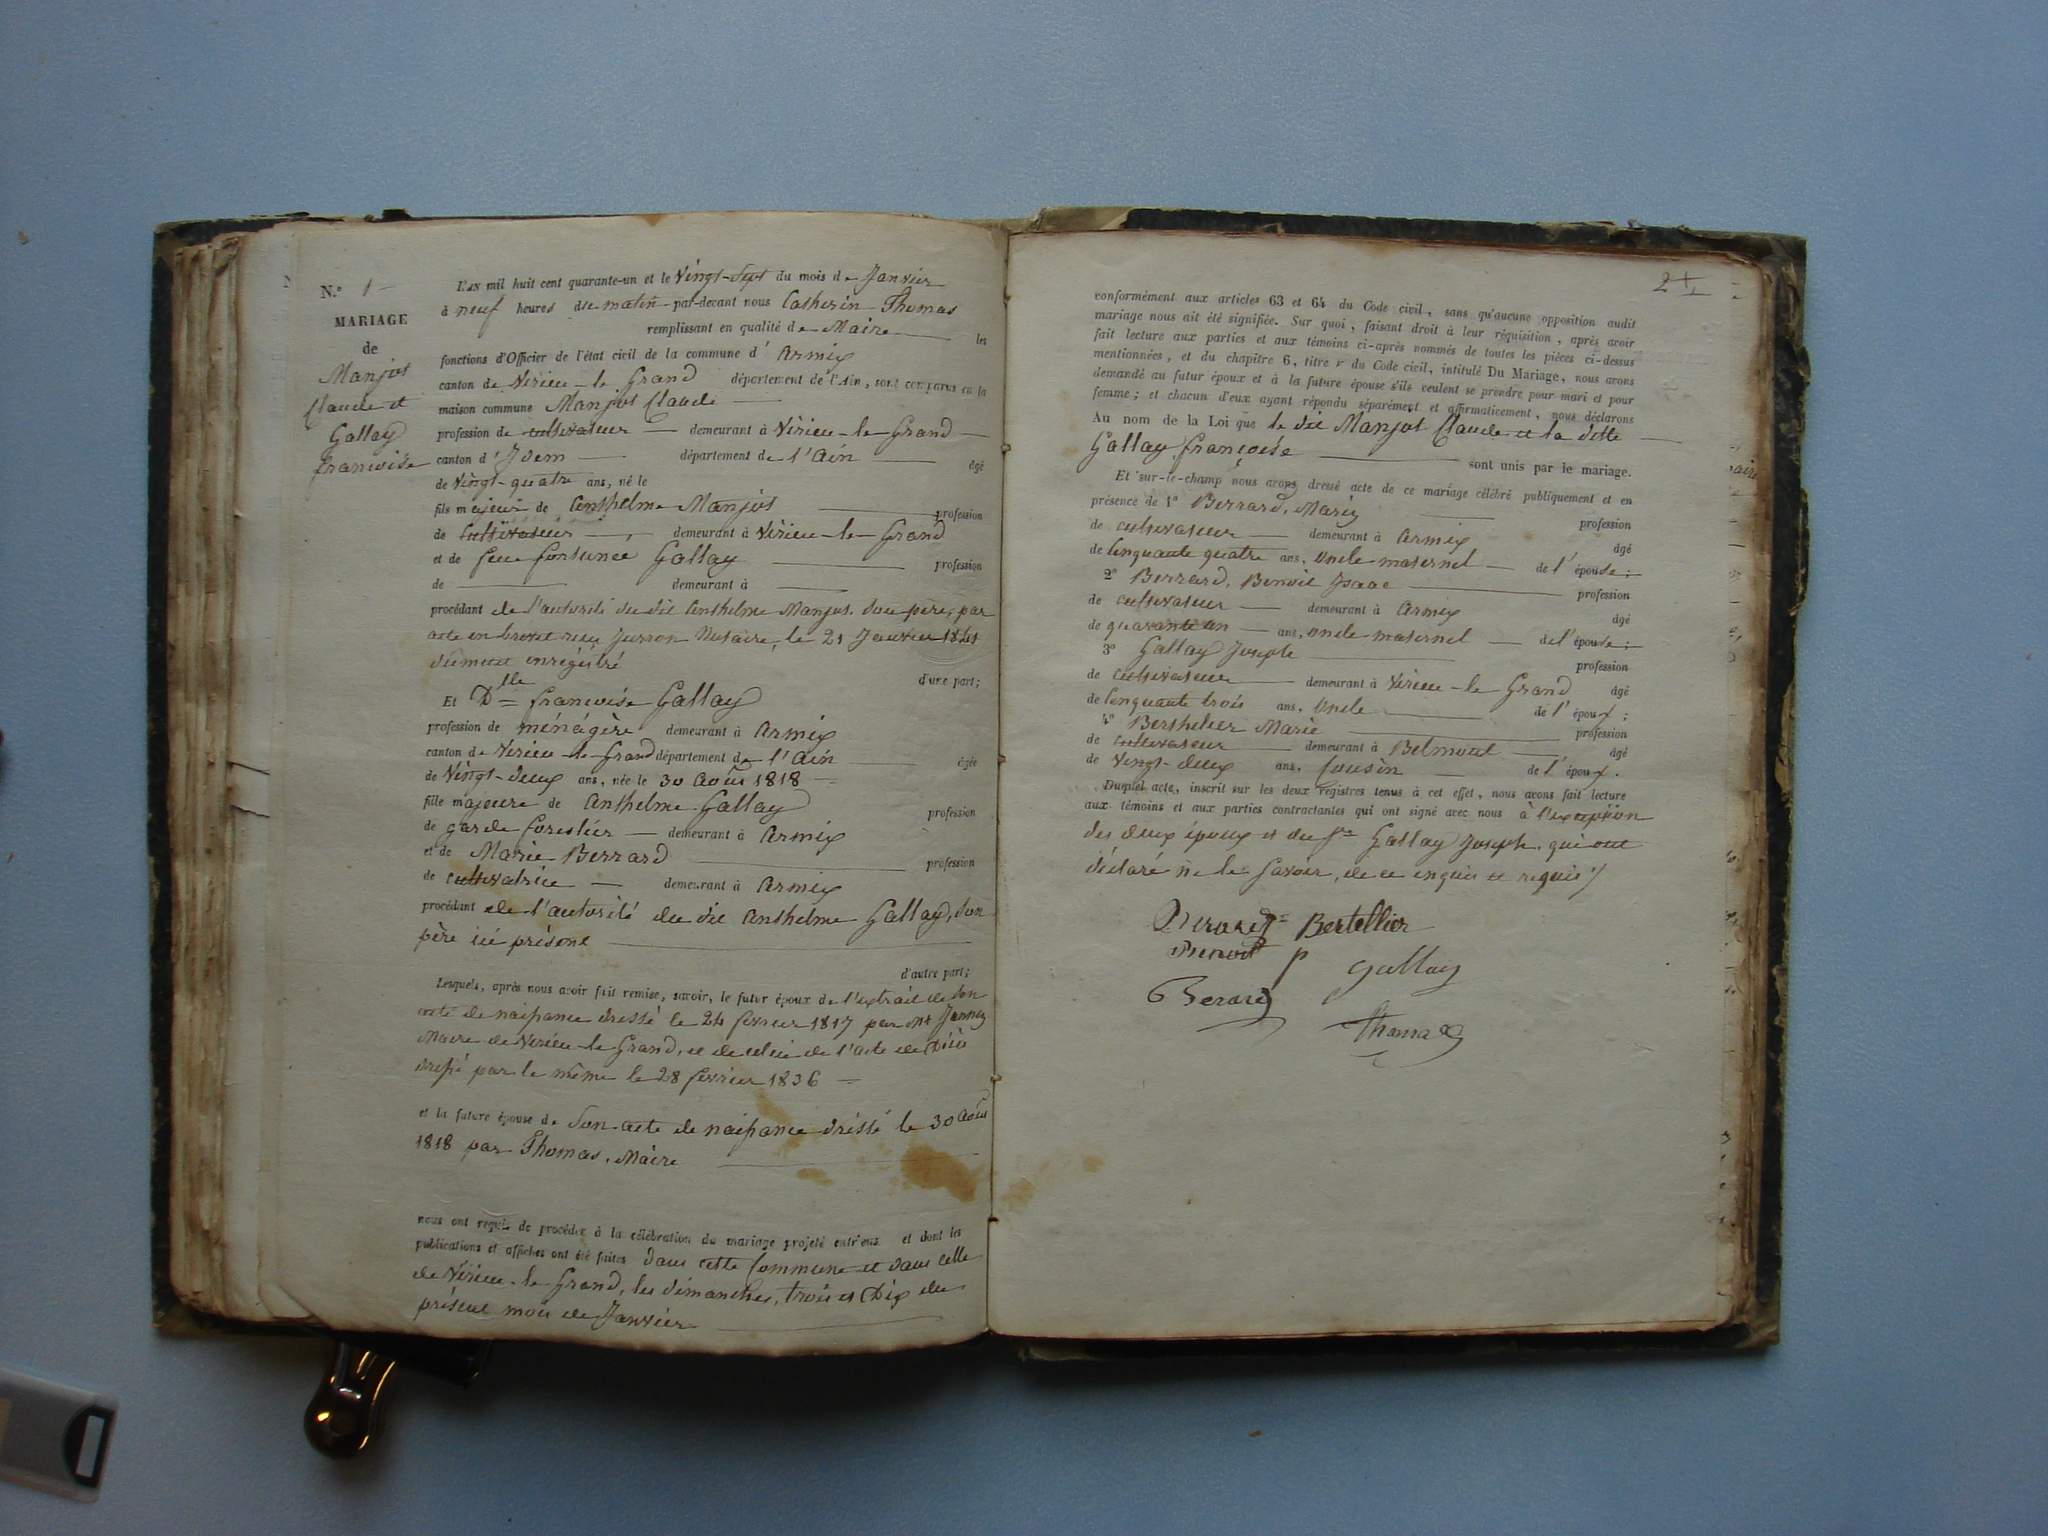 N.º 1
MARIAGE
de
Manjot
Claude et
Gallay
françoise
L'an mil huit cent quarante-un et le Vingt-Sept du mois de Janvier
à neuf heures du matin par-devant nous Catherin Thomas
remplissant en qualité de Maire les
fonctions d'Officier de l'état civil de la commune d' Armix
canton de Virieu-le-Grand département de l'Ain, sont comparus en la
maison commune Manjot Claude
profession de cultivateur demeurant à Virieu-le-Grand
canton d' Idem département de l'Ain âgé
de Vingt-quatre ans, né le
fils majeur de Anthelme Manjot profession
de Cultivateur demeurant à Virieu-le-Grand
et de feue fortunée Gallay profession
de demeurant à
procédant de l'autorité du dit Anthelme Manjot, son père, par
acte en brevet reçu Jurron Notaire, le 21 Janvier 1841
dûment enrégistré
d'une part;
Et Dlle françoise Gallay
profession de ménagère demeurant à Armix
canton de Virieu-le-Grand département de l'Ain âgée
de Vingt-deux ans, née le 30 Août 1818
fille majeure de Anthelme Gallay profession
de garde forestier demeurant à Armix
et de Marie Berrard profession
de cultivatrice demeurant à Armix
procédant de l'autorité du dit Anthelme Gallay, son
père ici présent
d'autre part;
Lesquels, après nous avoir fait remise, savoir, le futur époux de l'extrait de son
acte de naissance dressé le 24 février 1817 par Mr
Maire de Virieu-le-Grand, et de celui de l'acte de Décès
dressé par le même le 28 février 1836
et la future épouse de son acte de naissance dréssé le 30 Août
1818 par Thomas, Maire
nous ont requis de procéder à la célébration du mariage projeté entr'eux et dont les
publications et affiches ont été faites dans cette Commune et dans celle
de Virieu-le-Grand, les dimanches, trois et Dix du
présent mois de Janvier
2
conformément aux articles 63 et 64 du Code civil, sans qu'aucune opposition audit
mariage nous ait été signifiée. Sur quoi, faisant droit à leur réquisition, après avoir
fait lecture aux parties et aux témoins ci-après nommés de toutes les pièces ci-dessus
mentionnées, et du chapitre 6, titre v du Code civil, intitulé Du Mariage, nous avons
demandé au futur époux et à la future épouse s'ils veulent se prendre pour mari et pour
femme; et chacun d'eux ayant répondu séparément et affirmativement, nous déclarons
Au nom de la Loi que le dit Manjot Claude et la ditte
Gallay françoise sont unis par le mariage.
Et sur-le-champ nous avons dressé acte de ce mariage célébré publiquement et en
présence de 1º Berrard, Marin profession
de cultivateur demeurant à Armix âgé
de Cinquante quatre ans, Oncle maternel de l'épouse;
2º Berrard, Benoit Isaac profession
de cultivateur demeurant à Armix âgé
de quarante un ans, oncle maternel de l'épouse;
3º Gallay Joseph profession
de cultivateur demeurant à Virieu-le-Grand âgé
de Cinquante trois ans, Oncle de l'époux;
4º Berthelier Marie profession
de cultivateur demeurant à Belmont âgé
de Vingt-deux ans, Cousin de l'époux.
Duquel acte, inscrit sur les deux registres tenus à cet effet, nous avons fait lecture
aux témoins et aux parties contractantes qui ont signé avec nous à l'exception
des deux époux et du Sr Gallay Joseph, qui ont
déclaré ne le savoir, de ce enquis et requis
Bertellier
Benoit
Gallay
Berard
Thomas